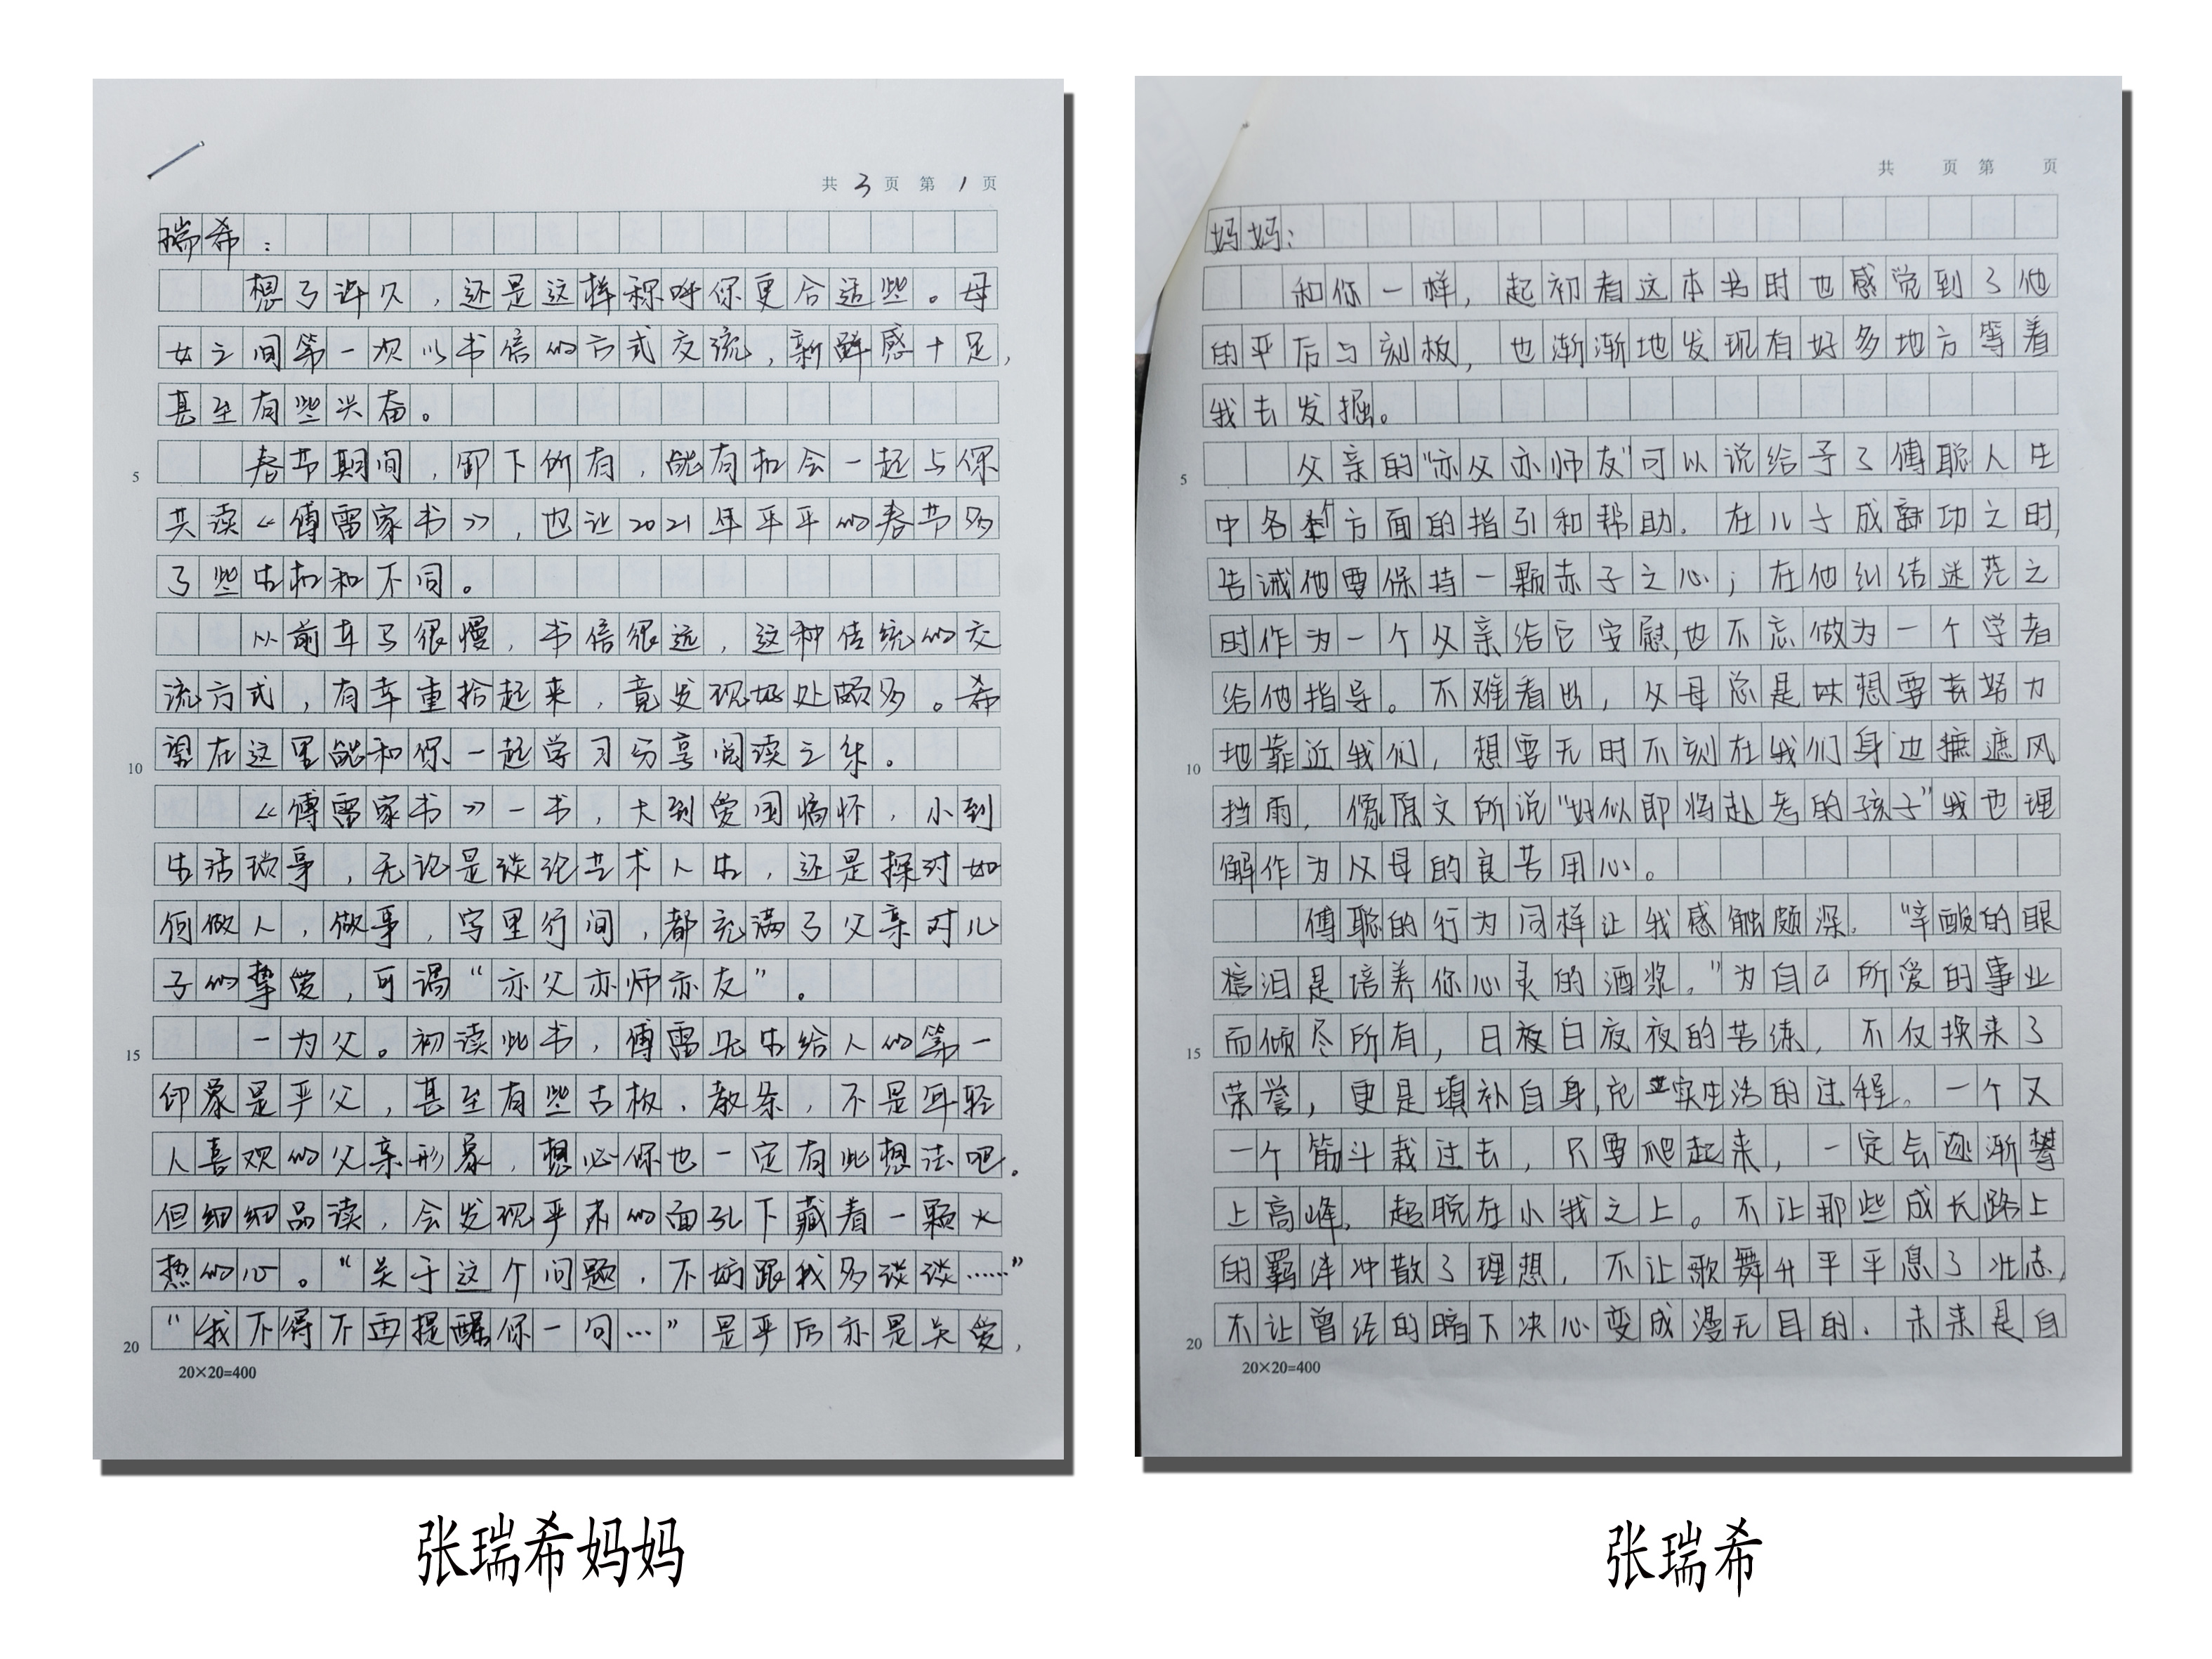 共 3 页 第 1 页
瑞希：
想了许久，还是这样称呼你更合适些。母
女之间第一次以书信的方式交流，新鲜感十足，
甚至有些兴奋。
春节期间，卸下所有，能有机会一起与你
5
共读《傅雷家书》，也让2021年平平的春节多
了些生机和不同。
以前车马很慢，书信很远，这种传统的交
流方式，有幸重拾起来，竟发现好处颇多。希
望在这里能和你一起学习分享阅读之乐。
10
《傅雷家书》一书，大到爱国情怀，小到
生活琐事，无论是谈论艺术人生，还是探讨如
何做人，做事，字里行间，都充满了父亲对儿
子的挚爱，可谓“亦父亦师亦友”。
一为父。初读此书，傅雷先生给人的第一
15
印象是严父，甚至有些古板、教条，不是年轻
人喜欢的父亲形象，想必你也一定有此想法吧。
但细细品读，会发现严肃的面孔下藏着一颗火
热的心。“关于这个问题，不妨跟我多谈谈……”
“我不得不再提醒你一句…”是严厉亦是关爱，
20
20×20=400
张瑞希妈妈
共 页 第 页
妈妈：
和你一样，起初看这本书时也感觉到了他
的严厉与刻板，也渐渐地发现有好多地方等着
我去发掘。
父亲的“亦父亦师友”可以说给予了傅聪人生
5
中各个方面的指引和帮助。在儿子成功之时，
告诫他要保持一颗赤子之心；在他纠结迷茫之
时作为一个父亲给它安慰，也不忘做为一个学者
给他指导。不难看出，父母总是想要去努力
地靠近我们，想要无时不刻在我们身边遮风
10
挡雨，像原文所说“好似即将赴考的孩子”我也理
解作为父母的良苦用心。
傅聪的行为同样让我感触颇深。“辛酸的眼
泪是培养你心灵的酒浆。”为自己所爱的事业
而倾尽所有，日夜日夜夜的苦练，不仅换来了
15
荣誉，更是填补自身，充实生活的过程。一个又
一个筋斗栽过去，只要爬起来，一定会逐渐攀
上高峰，超脱在小我之上。不让那些成长路上
的羁绊冲散了理想，不让歌舞升平平息了壮志，
不让曾经的暗下决心变成漫无目的。未来是自
20
20×20=400
张瑞希